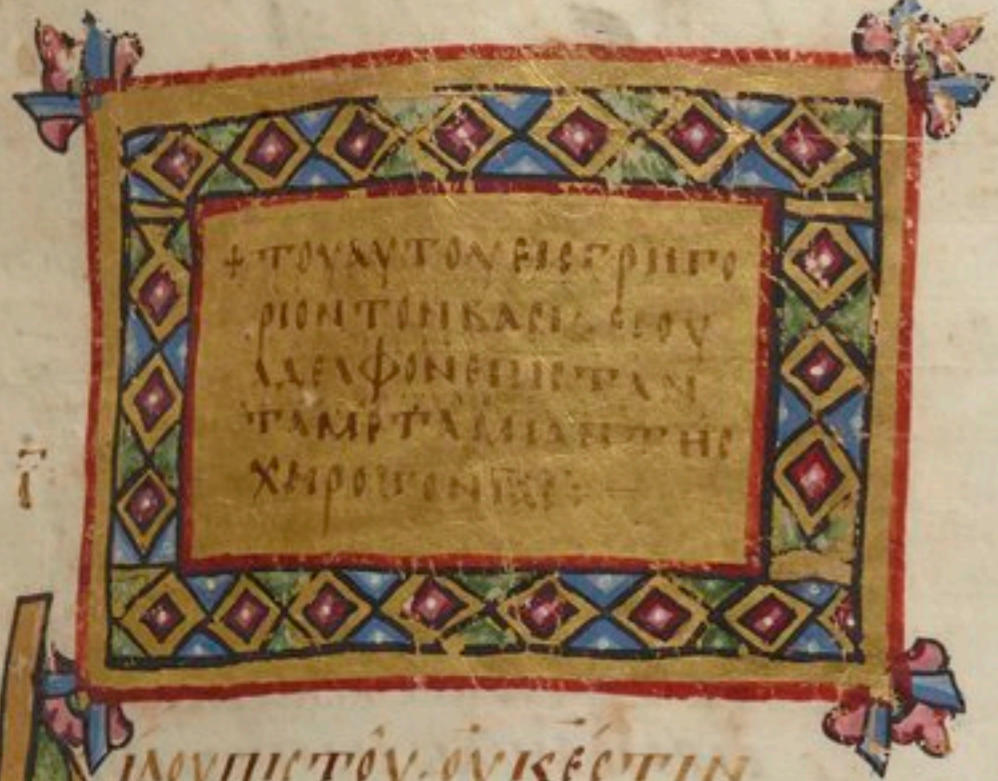 + ΤΟΥ ΑΥΤΟΥ ΕΙϹ ΓΡΗΓΟ
ΡΙΟΝ ΤΟΝ ΒΑϹΙΛΕΙΟΥ
ΑΔΕΛΦΟΝ ΕΠΙϹΤΑΝ
ΤΑ ΜΕΤΑ ΜΙΑΝ ΤΗϹ
ΧΕΙΡΟΤΟΝΙΑϹ:
ΙΛΟΥ ΠΙϹΤΟῦ· ΟΥ̓Κ ἔϹΤΙΝ